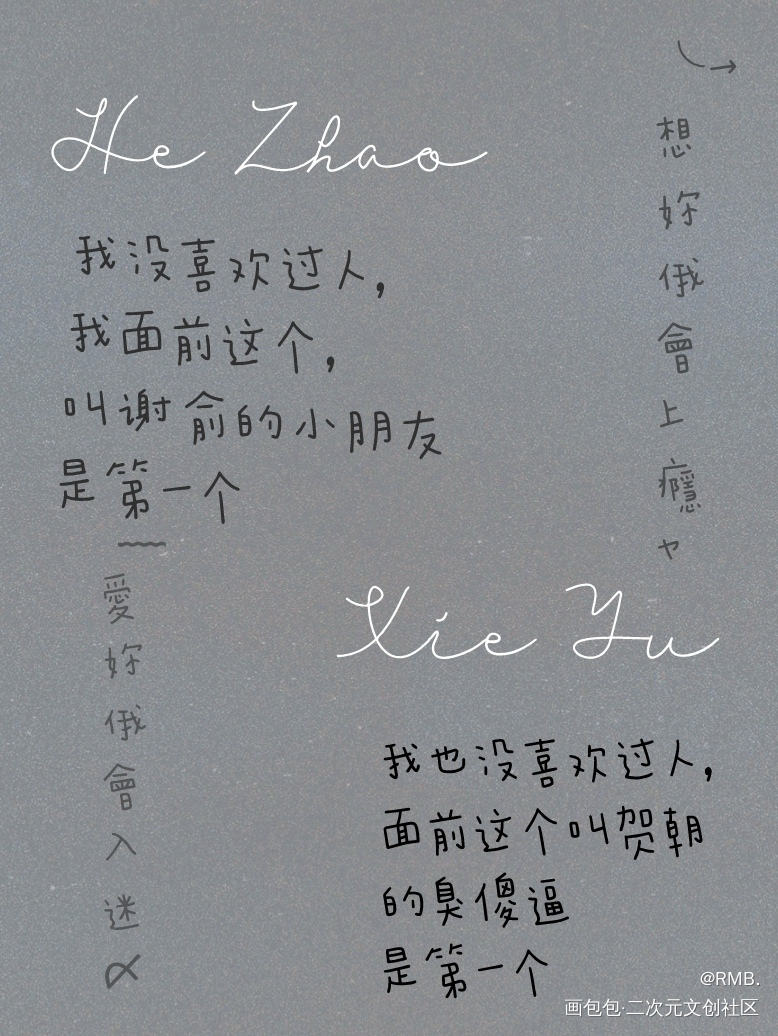 He Zhao
我没喜欢过人,
我面前这个,
叫谢俞的小朋友
是第一个
想妳俄會上癮ヤ
愛妳俄會入迷
Xie Yu
我也没喜欢过人,
面前这个叫贺朝
的臭傻逼
是第一个
@RMB.
画包包·二次元文创社区